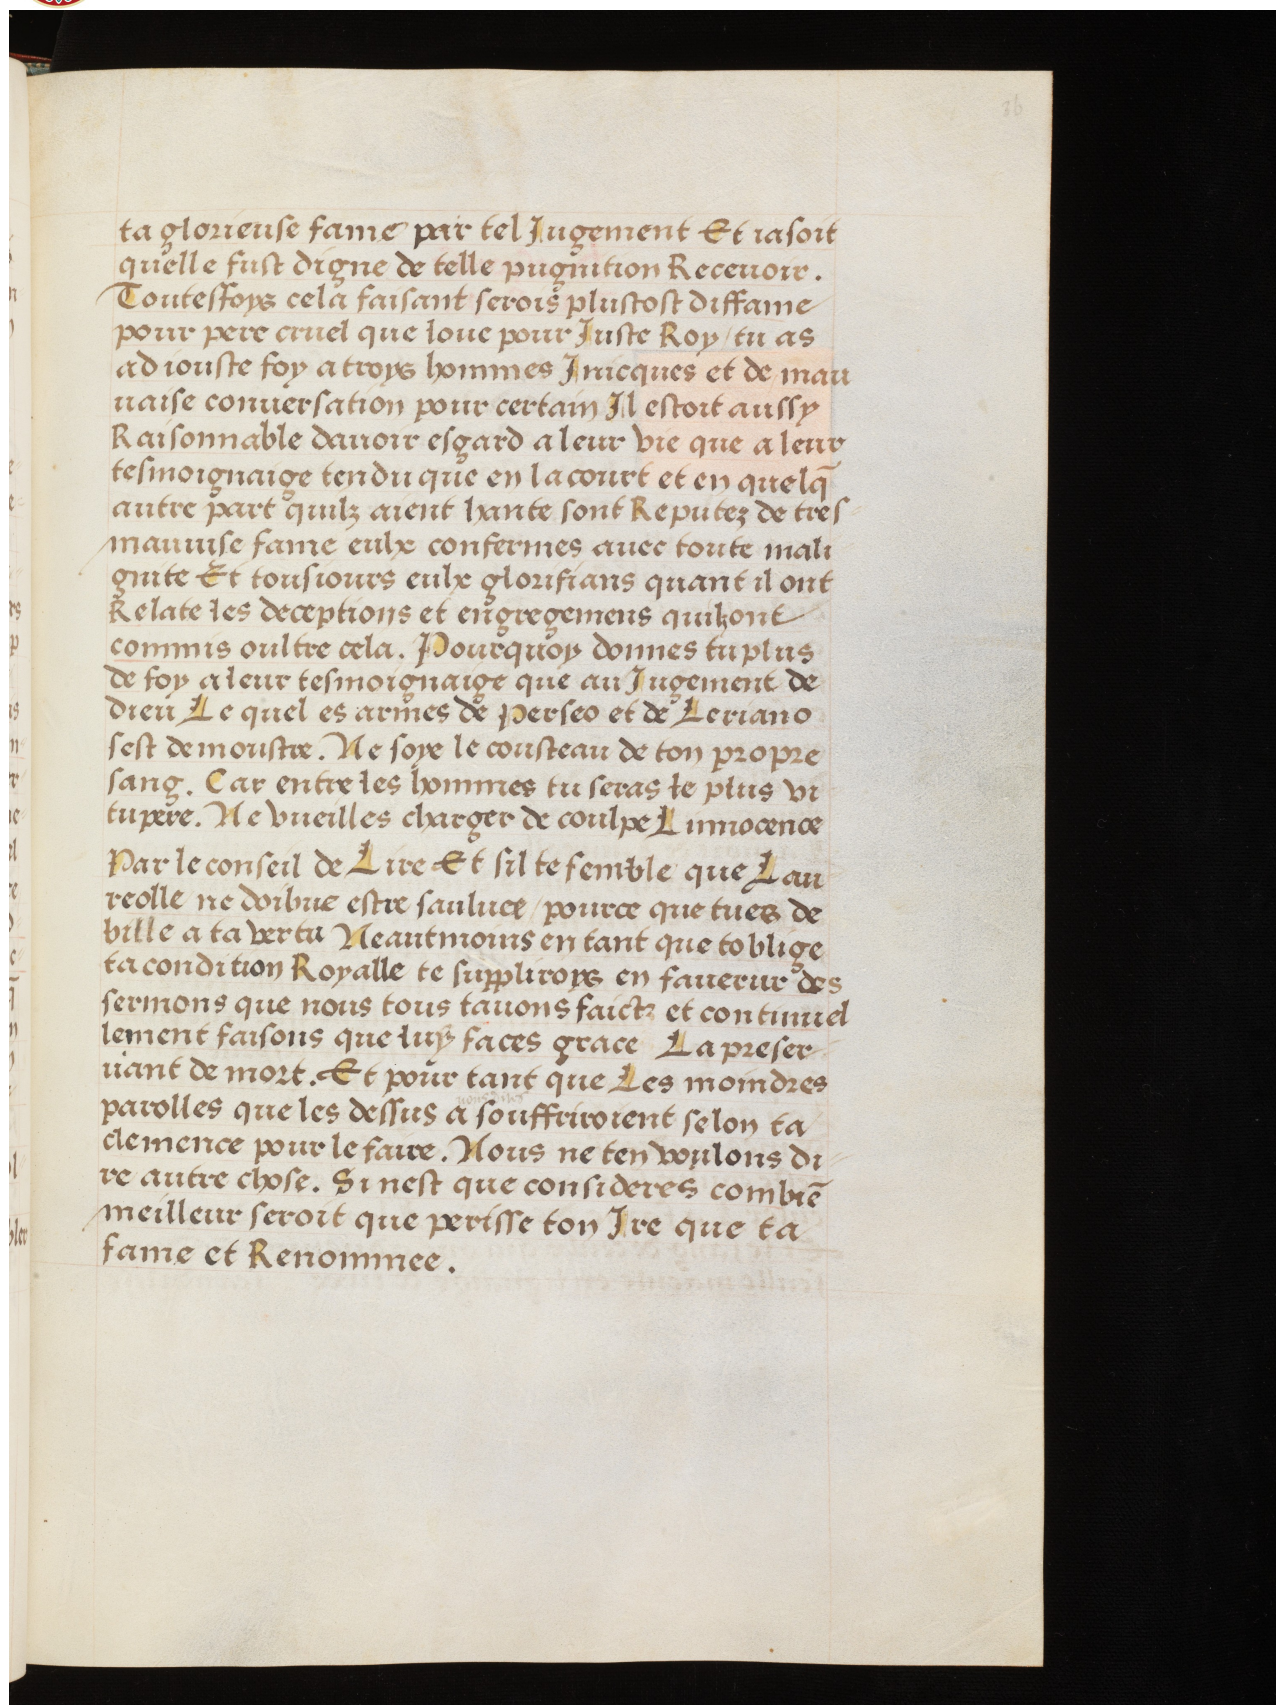 36
ta glorieuse fame par tel Jugement Et iasoit
quelle fust digne de telle pugnition Recevoir.
Toutesfoys cela faisant serois plustost diffame
pour pere cruel que loue pour Juste Roy / tu as
adiouste foy a troys hommes Jnicques et de mau
uaise conuersation pour certain Il estoit aussy
Raisonnable dauoir esgard a leur vie que a leur
tesmoignaige tendu que en la court et en quelq̄
autre part quilz aient hante sont Reputez de tres
mauuise fame eulx confermes auec toute mali
gnite Et tousiours eulx glorifians quant il ont
Relate les deceptions et engregemens quilz ont
commis oultre cela. Pourquoy donnes tu plus
de foy a leur tesmoignaige que au Jugement de
dieu Le quel es armes de Perseo et de Leriano
sest demoustre. Ne soye le cousteau de ton propre
sang. Car entre les hommes tu seras le plus vi
tupere. Ne vueilles charger de coulpe Linnocence
Par le conseil de Lire Et sil te semble que Lau
reolle ne doibue estre sauluee / pource que tues de
bille a ta vertu Neautmoins en tant que toblige
ta condition Royalle te supplirops en faueur des
sermons que nous tous tauons faictz et continuel
lement faisons que luy faces grace La preser
uant de mort. Et pour tant que Les moindres
parolles que les dessus a souffriroient selon ta
clemence pour le faire. Nous ne ten voulons di
re autre chose. Si nest que consideres combiē
meilleur seroit que perisse ton Ire que ta
fame et Renommee.